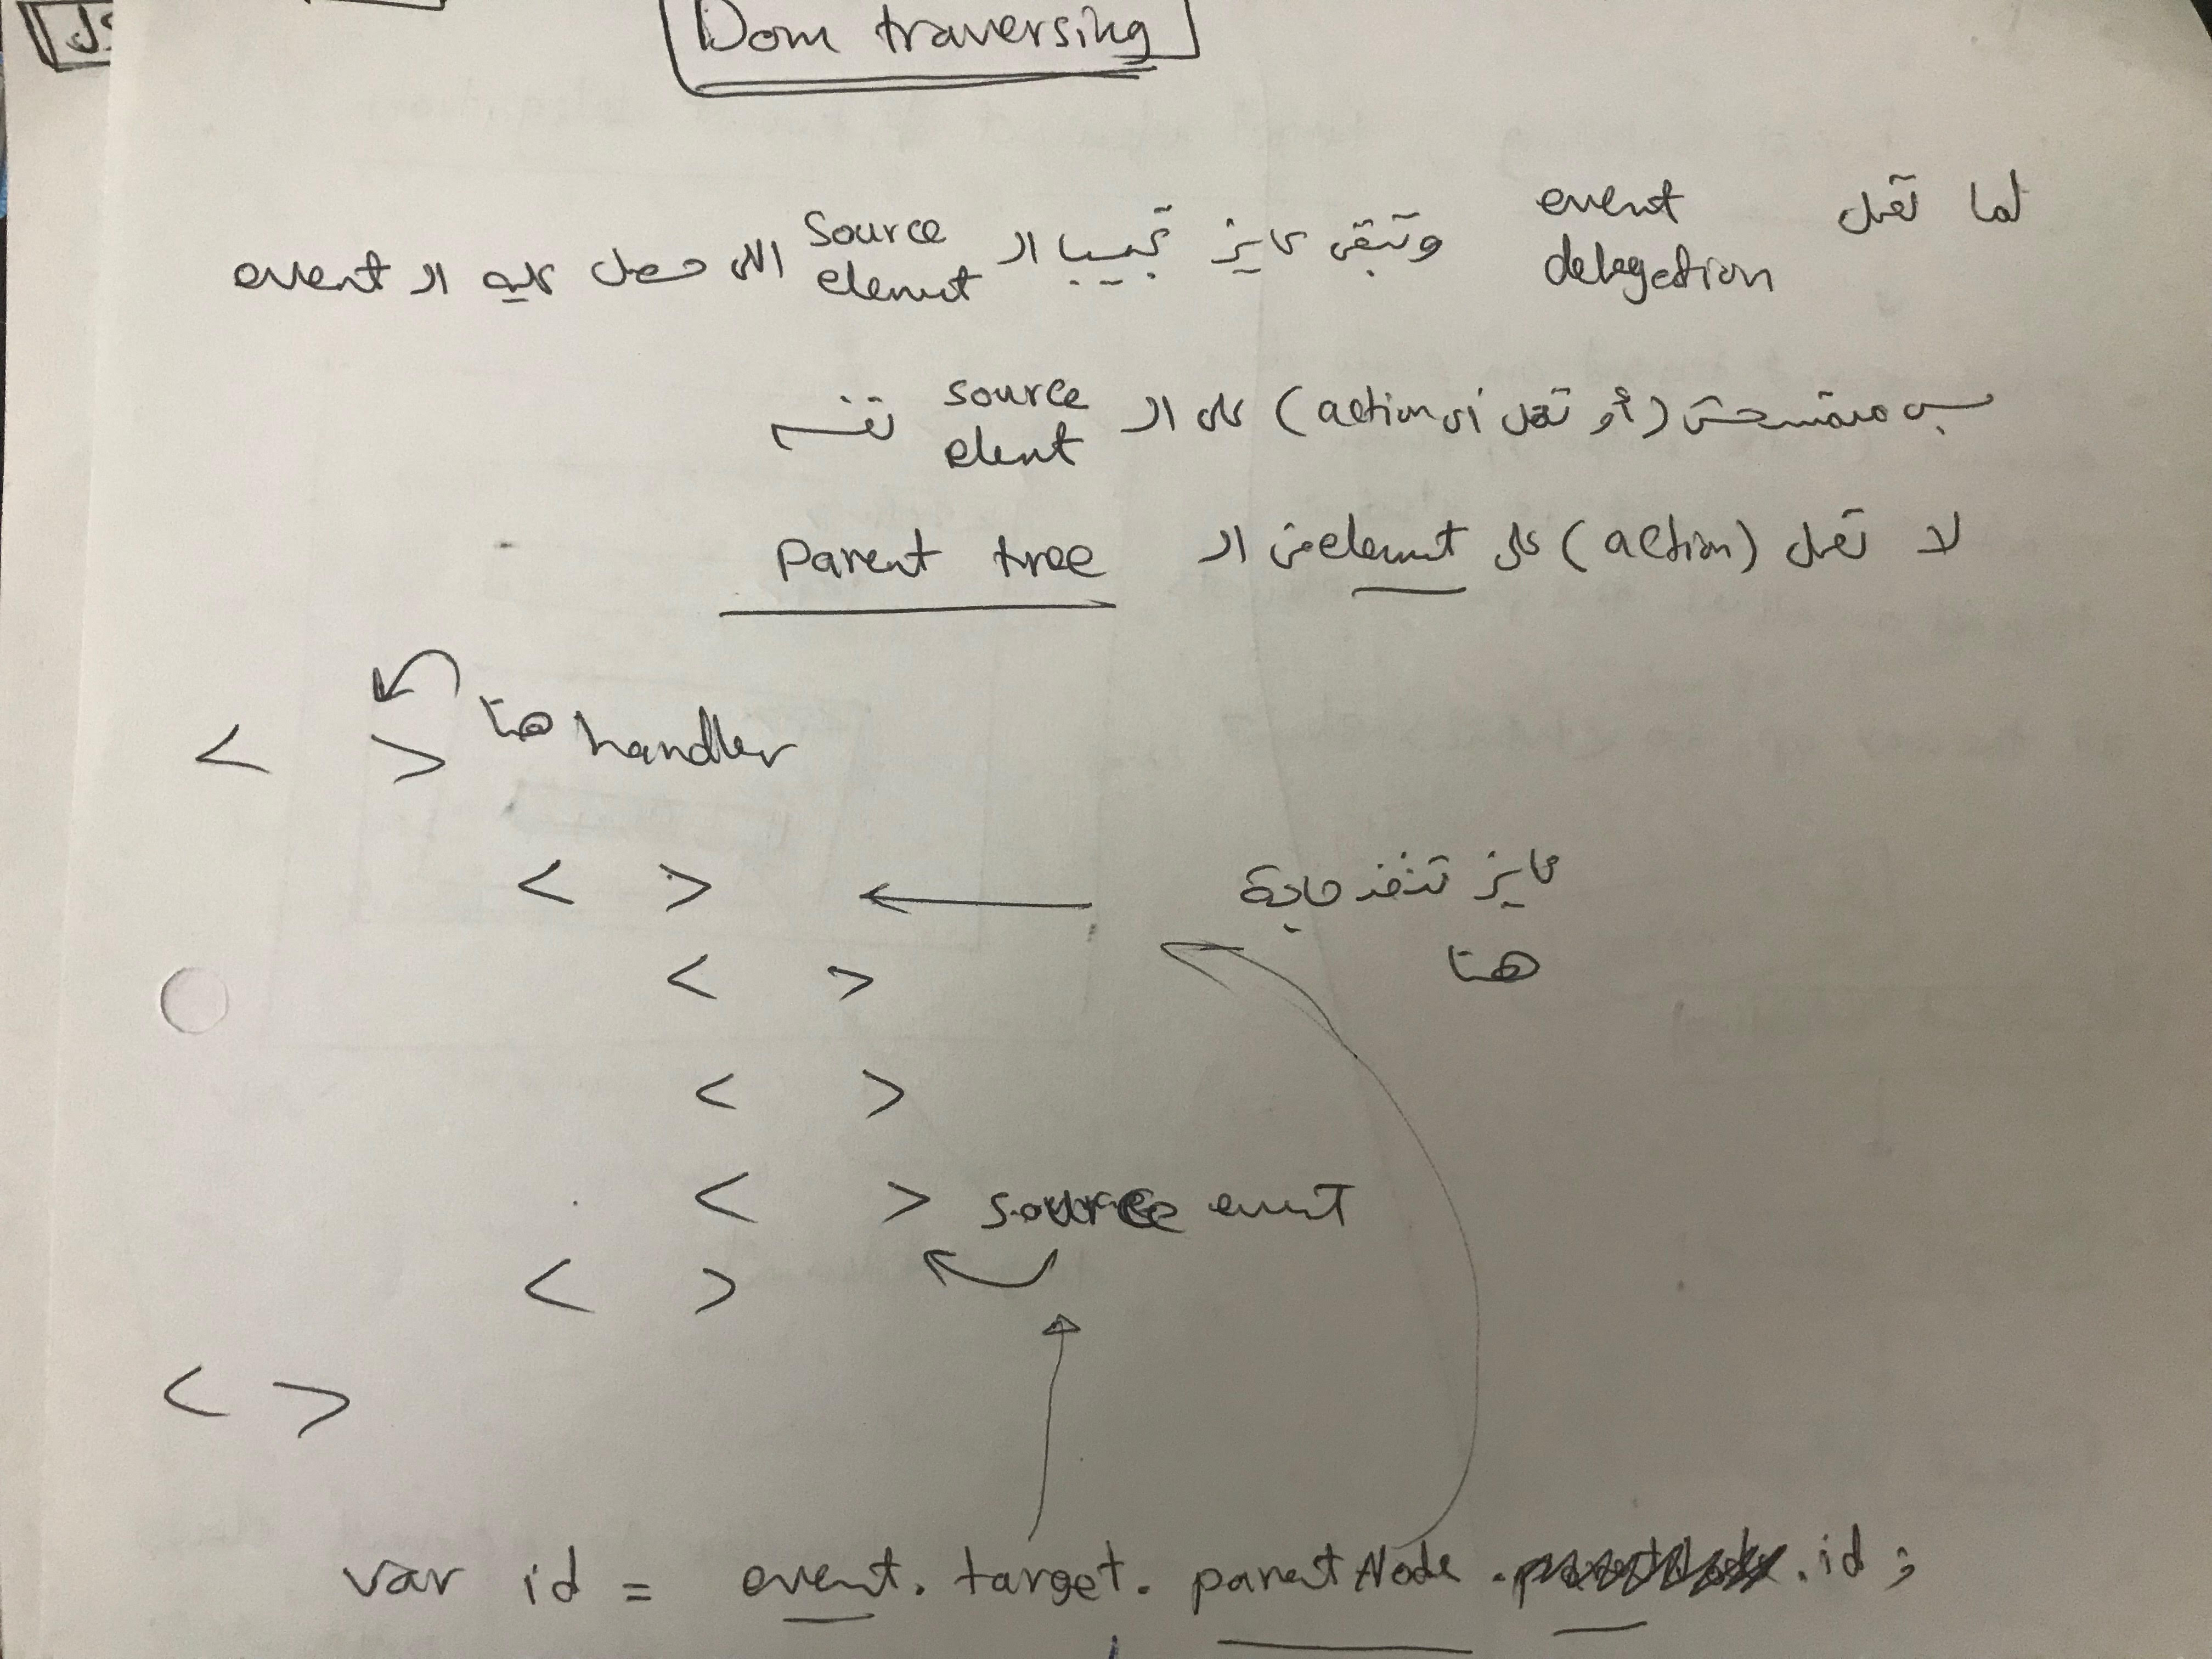 JS
Dom traversing
لما تعمل event delegation وتبقى عايز تجيب الـ source element اللى حصل عليه الـ event
بس متمسحش (أو تعمل أى action) على الـ source elent نفسه
لا تعمل (action) على element من الـ parent tree
< > هنا handler
< > عايز تنفذ حاجة
هنا
< >
< >
< > source event
< >
< >
var id = event. target. parentNode . .id ;